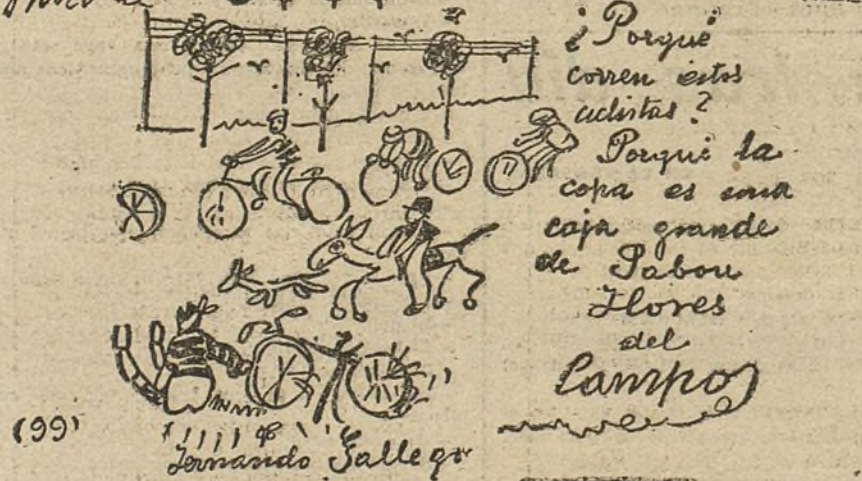 ¿Porqué
corren estos
ciclistas?
Porqué la
copa es una
caja grande
de Jabon
Flores
del
Campo
(99)
Fernando Gallego